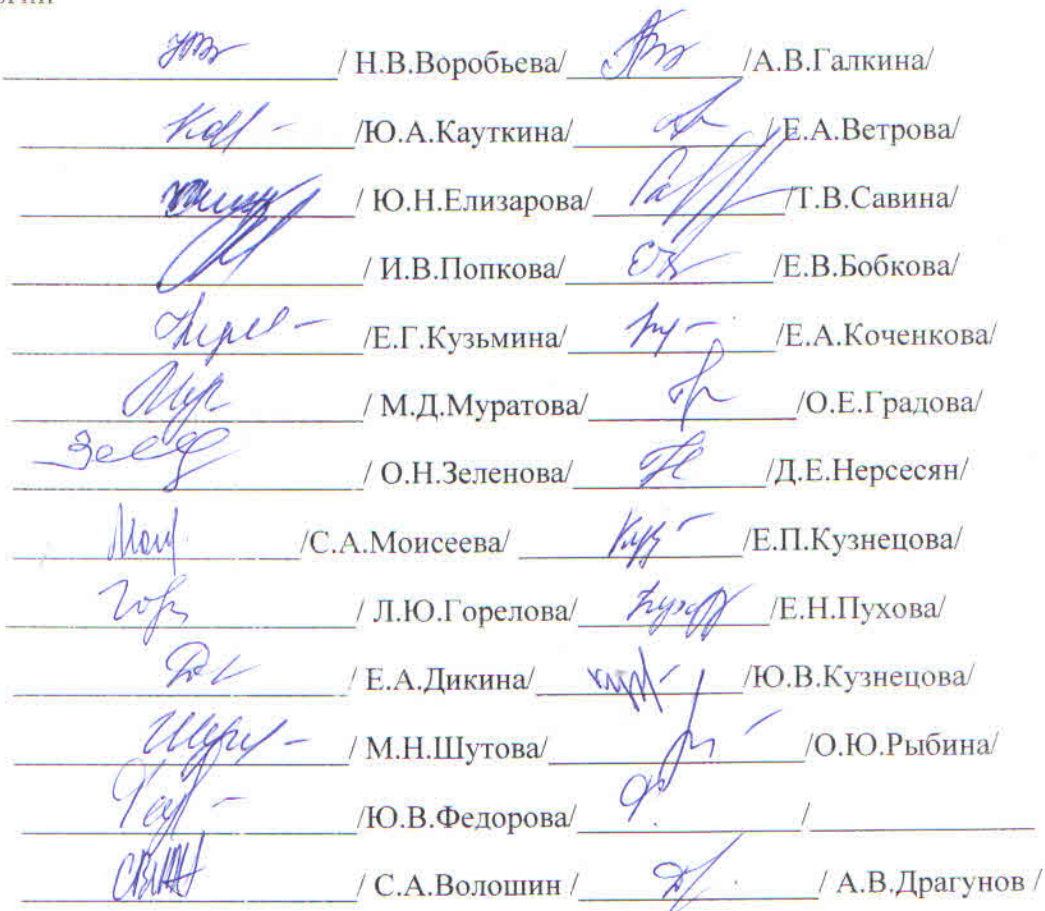 / Н.В.Воробьева/ /А.В.Галкина/
/Ю.А.Кауткина/ / Е.А.Ветрова/
/ Ю.Н.Елизарова/ /Т.В.Савина/
/ И.В.Попкова/ /Е.В.Бобкова/
/Е.Г.Кузьмина/ /Е.А.Коченкова/
/ М.Д.Муратова/ /О.Е.Градова/
/ О.Н.Зеленова/ /Д.Е.Нерсесян/
/С.А.Моисеева/ /Е.П.Кузнецова/
/ Л.Ю.Горелова/ /Е.Н.Пухова/
/ Е.А.Дикина/ /Ю.В.Кузнецова/
/ М.Н.Шутова/ /О.Ю.Рыбина/
/Ю.В.Федорова/ /
/ С.А.Волошин / / А.В.Драгунов /